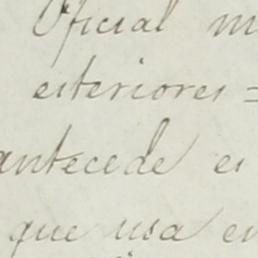 Oficial m
esteriores =
antecede es
que usa en